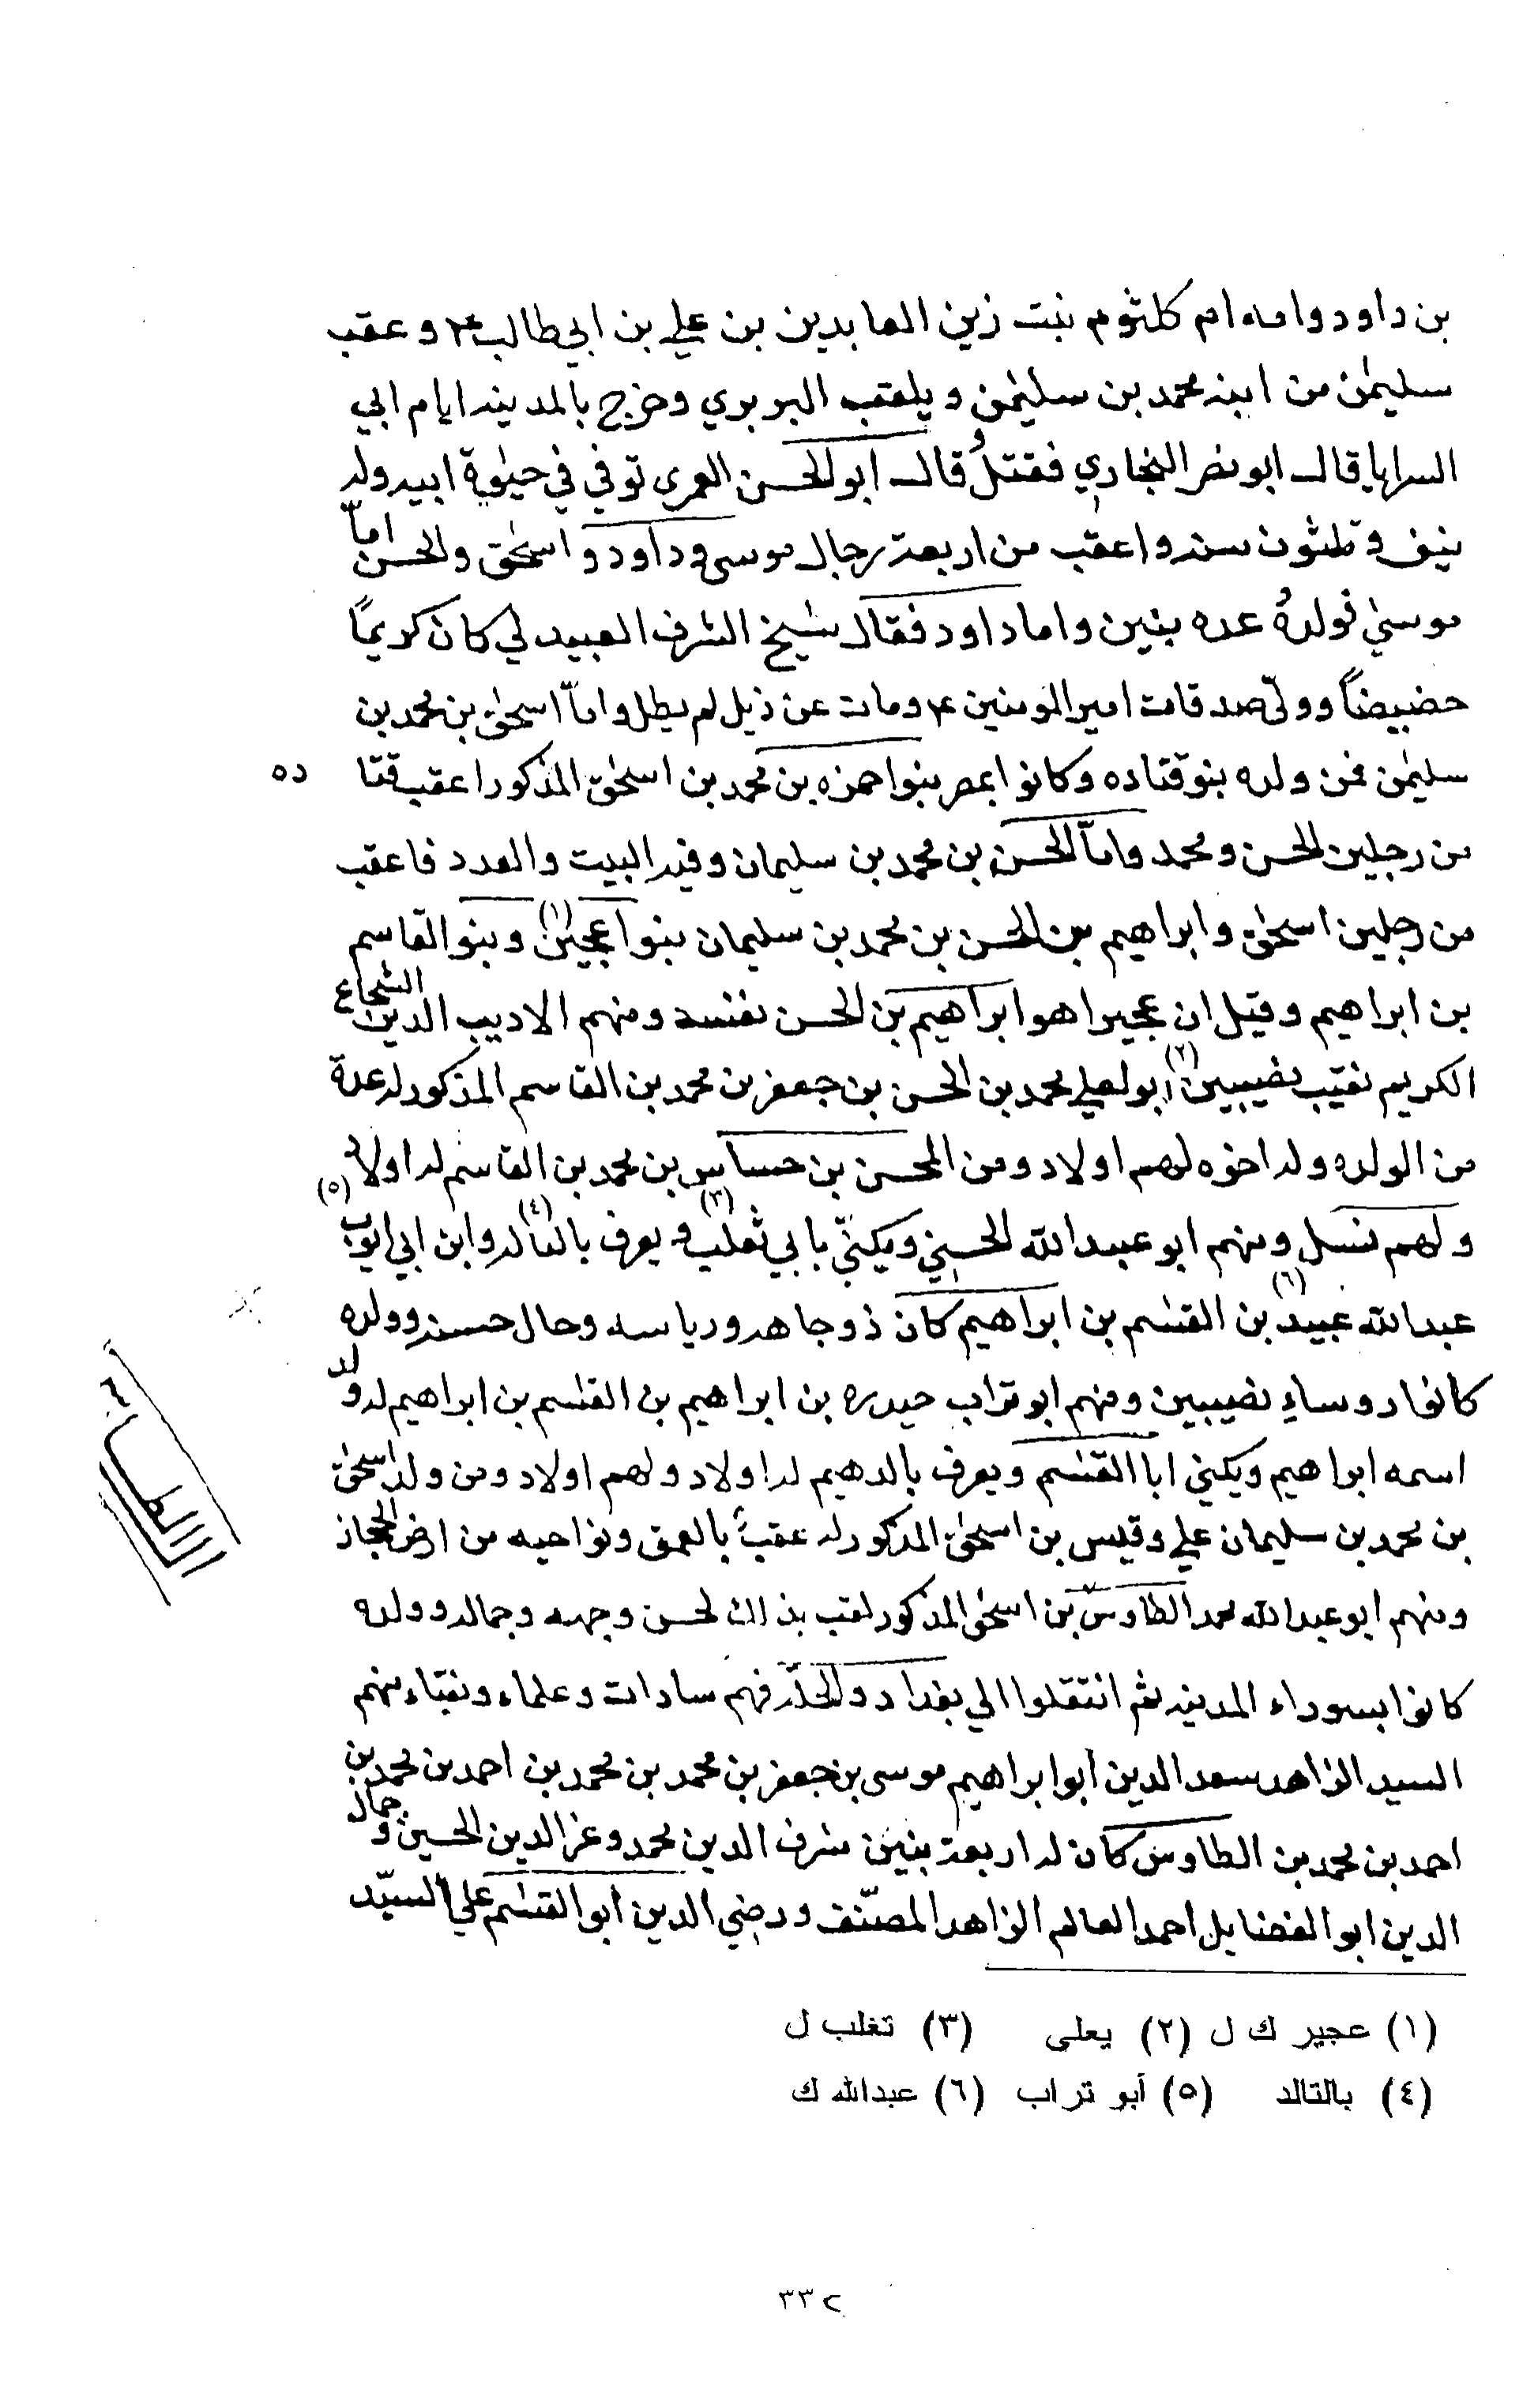 بن داود وامه ام كلثوم بنت زين العابدين بن علي بن ابي طالب ع م وعقب
سليمٰن من ابنه محمد بن سليمٰن ويلقب البربري وخرج بالمدينه ايام ابي
السرايا قال ابو نصر البخاري فقتلُ وقال ابو الحسن العمري توفي في حيٰوة ابيه وله
نيف وثلثون سنه واعقب من اربعة رجال موسى وداود واسحٰق والحسن امّا
موسىٰ فولدهُ عده بنين واما داود فقال شيخ الشرف العبيدلي كان كريمًا
حضيضاً وولّى صدقات امير المومنين ع م ومات عن ذيل لم يطل وامّا اسحٰق بن محمد بن
سليمٰن فمن ولده بنو قتاده وكانوا بمصر بنوا حمزه بن محمد بن اسحٰق المذكور اعقب قتا ده
من رجلين الحسن ومحمد وامّا الحسن بن محمد بن سليمان وفيه البيت والعدد فاعقب
من رجلين اسحٰق وابراهيم من الحسن بن محمد بن سليمان بنوا عجين (١) وبنو القاسم
بن ابراهيم وقيل ان عجيرا هو ابراهيم بن الحسن نفسه ومنهم الاديب الدين الشجاع
الكريم نقيب نصيبين (٢) ابو لعلي محمد بن الحسن بن جعفر بن محمد بن القاسم المذكور له عدة
من الولده وله اخوه لهم اولاد ومن المحسن بن حساس بن محمد بن القاسم له اولاد
ولهم نسل ومنهم ابو عبد الله الحسين ويكنّي بابي ثعلب (٣) ويعرف بالتالد (٤) وابن ابي ايوب (٥)
عبد الله عبيد (٦) بن القسٰم بن ابراهيم كان ذو جاهه ورياسه وحال حسنه وولده
كانوا روساء نصيبين ومنهم ابو تراب حيدره بن ابراهيم بن القسٰم بن ابراهيم له ولد
اسمه ابراهيم ويكني ابا القسٰم ويعرف بالدهيم له اولاد ولهم اولاد ومن ولد اسحٰق
بن محمد بن سليمان علي وقيس بن اسحٰق المذكور له عقبٌ بالعمق ونواحيه من ارض الحجاز
ومنهم ابو عبد الله محمد الطاوس بن اسحٰق المذكور لقب بذلك لحسن وجهه وجماله وولده
كانوا بسوراء المدينه ثم انتقلوا الي بغداد والحلّه فهم سادات وعلماء ونقباء منهم
السيد الزاهد سعد الدين ابو ابراهيم موسى بن جعفر بن محمد بن محمد بن احمد بن محمد بن
احمد بن محمد بن الطاوس كان له اربعة بنين شرف الدين محمد وعز الدين الحسين وجمال
الدين ابو الفضايل احمد العالم الزاهد المصنّف ورضي الدين ابو القسٰم علي السيّد
(١) عجير ك ل (٢) يعلى (٣) تغلب ل
(٤) بالتالد (٥) أبو تراب (٦) عبدالله ك
٣٣٢